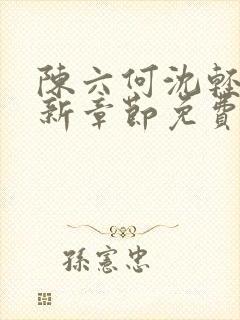 陳六何沈輕
新章節免費
孫憲忠